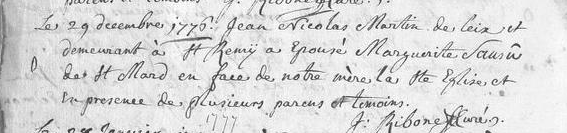 parens et temoins. J. Ribone Curé.
Le 29 decembre 1776. Jean Nicolas Martin de leix et
demeurant à St Remy a Epousé Marguerite
de St Mard en face de notre mère la Ste Eglise et
En presence de plusieurs parens et temoins.
J. Ribone Curé.
1777
Le Janvier